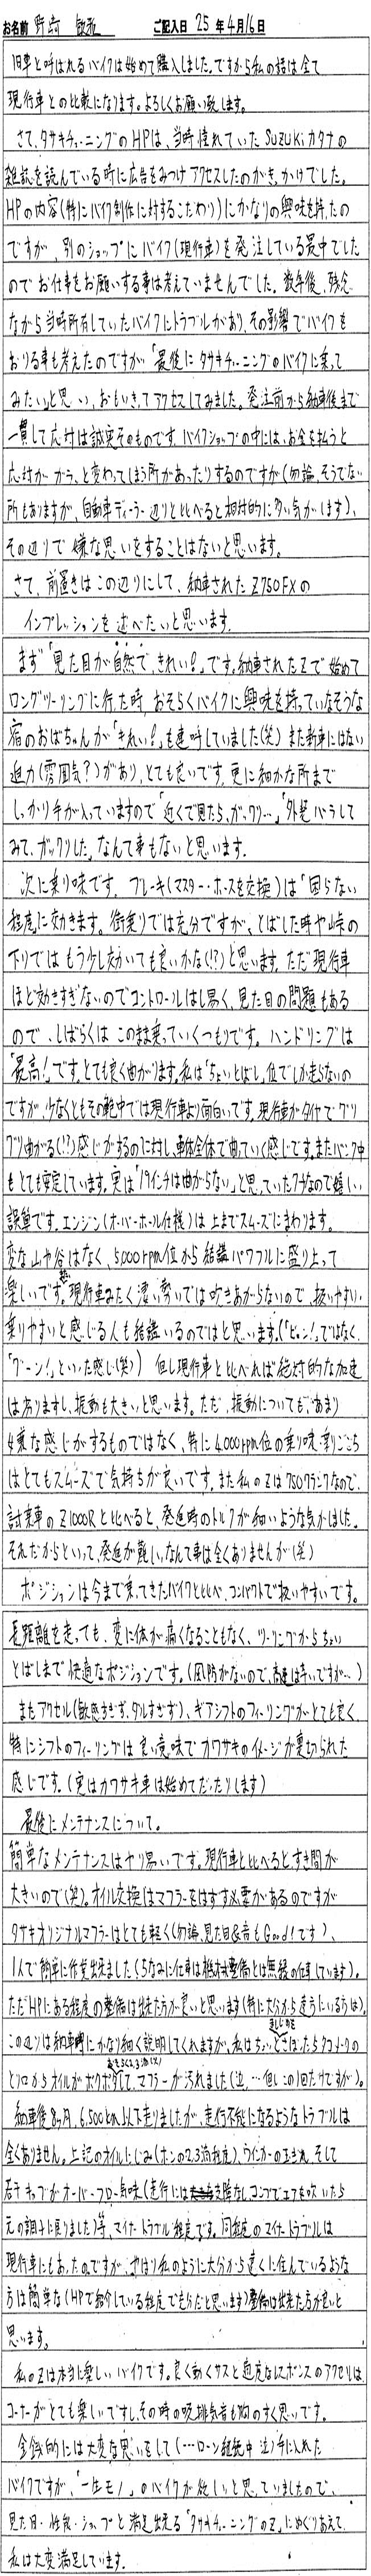 お名前 野崎　　ご記入日 25 年 4月16日
旧車と呼ばれるバイクは始めて購入しました。ですから私の話は全て
現行車との比較になります。よろしくお願い致します。
さて、タサキチューニングのHPは、当時憧れていた SUZUKI カタナの
雑誌を読んでいる時に広告をみつけアクセスしたのがきっかけでした。
HPの内容(特にバイク制作に対するこだわり)にかなりの興味を持ったの
ですが、別のショップにバイク(現行車)を発注している最中でした
のでお仕事をお願いする事は考えていませんでした。数年後、残念
ながら当時所有していたバイクにトラブルがあり、その影響でバイクを
おりる事も考えたのですが「最後にタサキチューニングのバイクに乗って
みたい」と思い、おもいきってアクセスしてみました。発注前から納車後まで
一貫して応対は誠実そのものです。バイクショップの中には、お金を払うと
応対がガラッと変わってしまう所があったりするのですが(勿論そうでない
所もありますが、自動車ディーラー辺りと比べると相対的に多い気がします)、
その辺りで嫌な思いをすることはないと思います。
さて、前置きはこの辺りにして、納車されたZ750FXの
インプレッションを述べたいと思います。
まず「見た目が自然で、きれい!」です。納車されたZで始めて
ロングツーリングに行った時、おそらくバイクに興味を持っていなそうな
宿のおばちゃんが「きれい!」を連呼していました(笑) また新車にはない
迫力(雰囲気?)があり、とても良いです。更に細かな所まで
しっかり手が入っていますので「近くで見たら、ガックリ…」「外装バラして
みて、ガックリした」なんて事もないと思います。
次に乗り味です。ブレーキ(マスター・ホースを交換)は「困らない
程度」に効きます。街乗りでは充分ですが、とばした時や峠の
下りではもう少し効いても良いかな(!?)と思います。ただ現行車
ほど効きすぎないのでコントロールはし易く、見た目の問題もある
ので、しばらくはこのまま乗っていくつもりです。ハンドリングは
「最高!」です。とても良く曲がります。私は「ちょいとばし」位でしか走らないの
ですが、少なくともその範中では現行車より面白いです。現行車がタイヤでグリ
グリ曲がる(!?)感じがするのに対し、車体全体で曲っていく感じです。またバンク中
もとても安定しています。実は「19インチは曲がらない」と思っていたクチなので嬉しい
誤算です。エンジン(オーバーホール仕様)は上までスムーズにまわります。
変な山や谷はなく、5,000rpm位から結構パワフルに盛り上って
楽しいです。現行車みたく凄い勢いでは吹きあがらないので、扱いやすい・
乗りやすいと感じる人も結構いるのではと思います。(「ビュン!」ではなく、
「グーン!」といった感じ(笑)) 但し現行車と比べれば絶対的な加速
は劣りますし、振動も大きいと思います。ただ、振動についても(あまり)
嫌な感じがするものではなく、特に4,000rpm位の乗り味・乗りごこち
はとてもスムーズで気持ちが良いです。また私のZは750クランクなので、
試乗車のZ1000Rと比べると、発進時のトルクが細いような気がしました。
それだからといって、発進が難しいなんて事は全くありませんが(笑)
ポジションは今まで乗ってきたバイクと比べ、コンパクトで扱いやすいです。
長距離を走っても、変に体が痛くなることもなく、ツーリングからちょい
とばしまで快適なポジションです。(風防がないので、高速は辛いですが…)
またアクセル(敏感すぎず、ダルすぎず)、ギアシフトのフィーリングがとても良く、
特にシフトのフィーリングは良い意味でカワサキのイメージが裏切られた
感じです。(実はカワサキ車は始めてだったりします)
最後にメンテナンスについて。
簡単なメンテナンスはヤリ易いです。現行車と比べるとすき間が
大きいので(笑)。オイル交換はマフラーをはずす必要があるのですが
タサキオリジナルマフラーはとても軽く(勿論、見た目&音もGood!です)、
1人で簡単に作業出来ました(ちなみに仕事は機械整備とは無縁の仕事しています)。
ただHPにある程度の整備は出来た方が良いと思います(特に大分から遠方にいる方は)。
この辺りは納車時にかなり細く説明してくれますが、私はちょいとさぼったらタコメータの
とり口からオイルがポタポタして、マフラーが汚れました(泣…但しこの1回だけですが)。
納車後8ヶ月、6,500km以上走りましたが、走行不能になるようなトラブルは
全くありません。上記のオイルにじみ(ホンの2、3滴程度)、ウインカーの玉ぎれ、そして
若干キャブがオーバーフロー気味(走行には支障なし、コンプでエアを吹いたら
元の調子に戻りました)等、マイナートラブル程度です。同程度のマイナートラブルは
現行車にもあったのですが、やはり私のように大分から遠くに住んでいるような
方は簡単な(HPで紹介している程度で充分だと思います)整備は出来た方が良いと
思います。
私のZは本当に楽しいバイクです。良く動くサスと適度なレスポンスのアクセルは、
コーナーがとても楽しいですし、その時の吸排気音も胸のすく思いです。
金銭的には大変な思いをして(…ローン継続中 泣)手に入れた
バイクですが、「一生モノ」のバイクが欲しいと思っていましたので、
見た目・性能・ショップと満足出来る「タサキチューニングのZ」にめぐりあえて、
私は大変満足しています。